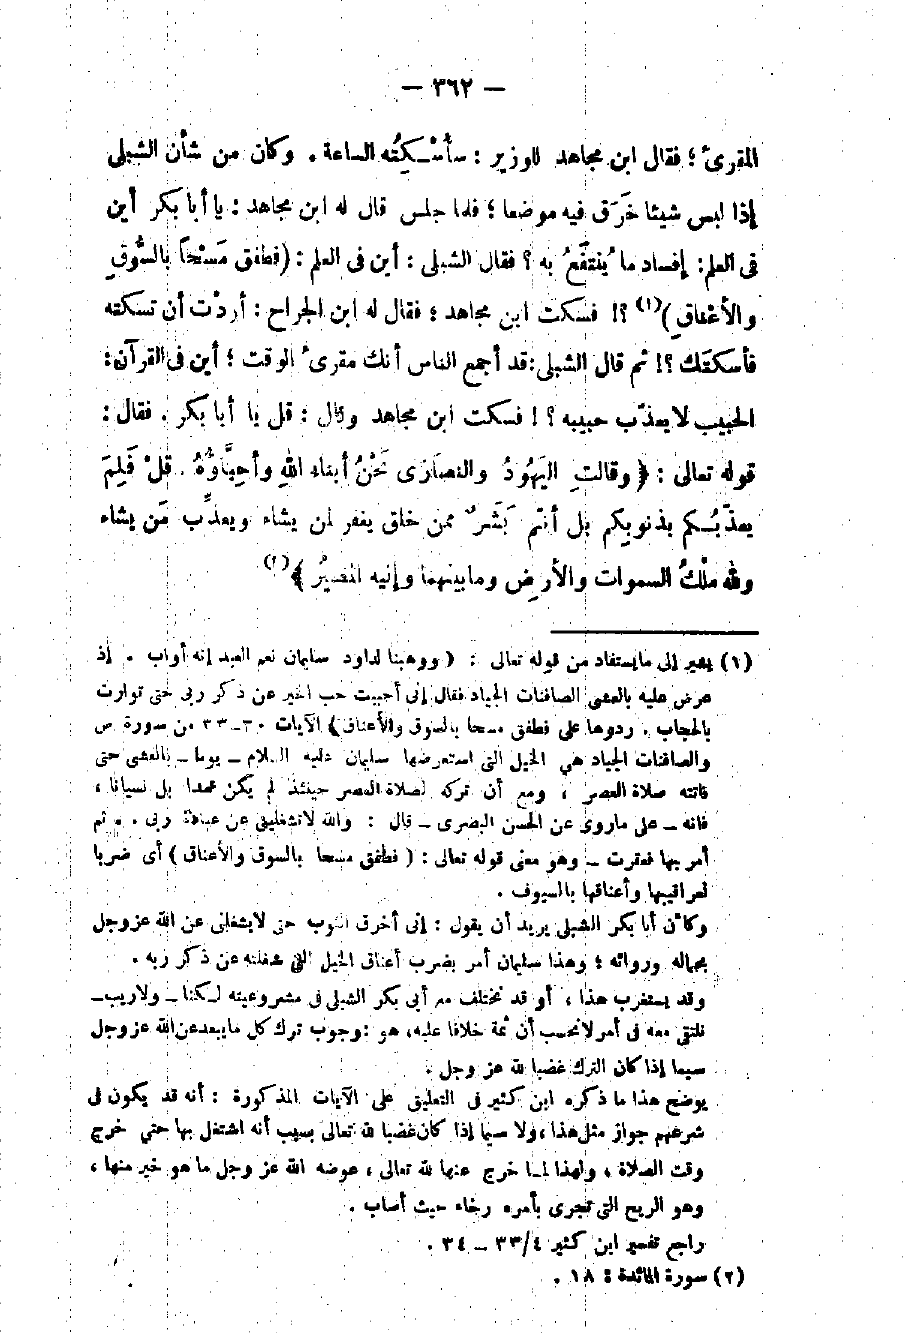 — ٣٦٢ —
المقرئ ؛ فقال ابن مجاهد للوزير : سأُسْـكِتُه الساعة . وكان من شأن الشبلى
إذا لبس شيئا خَرَق فيه موضعا ؛ فلما جلس قال له ابن مجاهد : يا أبا بكر أين
فى العلم : إفساد ما يُنتفَعُ به ؟ فقال الشبلى : أين فى العلم : ( فطفق مَسْحًا بالسُّوقِ
والأعْناقِ )(١) ؟! فسكت ابن مجاهد ؛ فقال له ابن الجراح : أردْت أن تسكته
فأسكتَك ؟! ثم قال الشبلى : قد أجمع الناس أنك مقرئ الوقت ؛ أين فى القرآن :
الحبيب لا يعذّب حبيبه ؟ ! فسكت ابن مجاهد وقال : قل يا أبا بكر . فقال :
قوله تعالى : ﴿ وقالتِ اليَهُودُ والنصارَى نَحْنُ أبناء اللهِ وأحِبَّاؤُهُ . قلْ فَلِمَ
يعذّبُـكم بذنوبِكم بل أنتُم بَشَرٌ ممن خلق يغفر لمن يشاء ويعذِّب مَن يشاء
ولله ملْكُ السموات والأرضِ وما بينهما وإليه المصيُر ﴾(٢)
(١) يشير إلى ما يستفاد من قوله تعالى : ( ووهبنا لداود سليمان نعم العبد إنه أواب . إذ
عرض عليه بالعشى الصافنات الجياد فقال إنى أحببت حب الخير عن ذكر ربى حتى توارت
بالحجاب . ردوها على فطفق مسحا بالسوق والأعناق ) الآيات ٣٠-٣٣ من سورة ص
والصافنات الجياد هي الخيل التى استعرضها سليمان عليه السلام ــ يوما ــ بالعشى حتى
فاتته صلاة العصر ، ومع أن تركه لصلاة العصر حينئذ لم يكن عمدا بل نسيانا ،
فانه ــ على ماروى عن الحسن البصرى ــ قال : والله لا تشغلينى عن عبادة ربى . . ثم
أمر بها فعقرت ــ وهو معنى قوله تعالى : ( فطفق مسحا بالسوق والأعناق ) أى ضربا
لعراقيبها وأعناقها بالسيوف .
وكأن أبا بكر الشبلى يريد أن يقول : إنى أخرق الثوب حتى لا يشغلنى عن الله عز وجل
بجماله وروائه ؛ وهذا سليمان أمر بضرب أعناق الخيل التى شغلته عن ذكر ربه .
وقد يستغرب هذا ، أو قد نختلف مع أبى بكر الشبلى فى مشروعيته لـكنا ــ ولا ريب ــ
نلتقى معه فى أمر لا نحسب أن ثمة خلافا عليه، هو : وجوب ترك كل ما يبعد عن الله عز وجل
سيما إذا كان الترك غضبا لله عز وجل .
يوضح هذا ما ذكره ابن كثير فى التعليق على الآيات المذكورة : أنه قد يكون فى
شرعهم جواز مثل هذا ، ولا سيما إذا كان غضبا لله تعالى بسبب أنه اشتغل بها حتى خرج
وقت الصلاة ، ولهذا لمـا خرج عنها لله تعالى ، عوضه الله عز وجل ما هو خير منها ،
وهو الريح التى تجرى بأمره رخاء حيث أصاب .
راجع تفسير ابن كثير ٣٣/٤ ــ ٣٤ .
(٢) سورة المائدة : ١٨ .